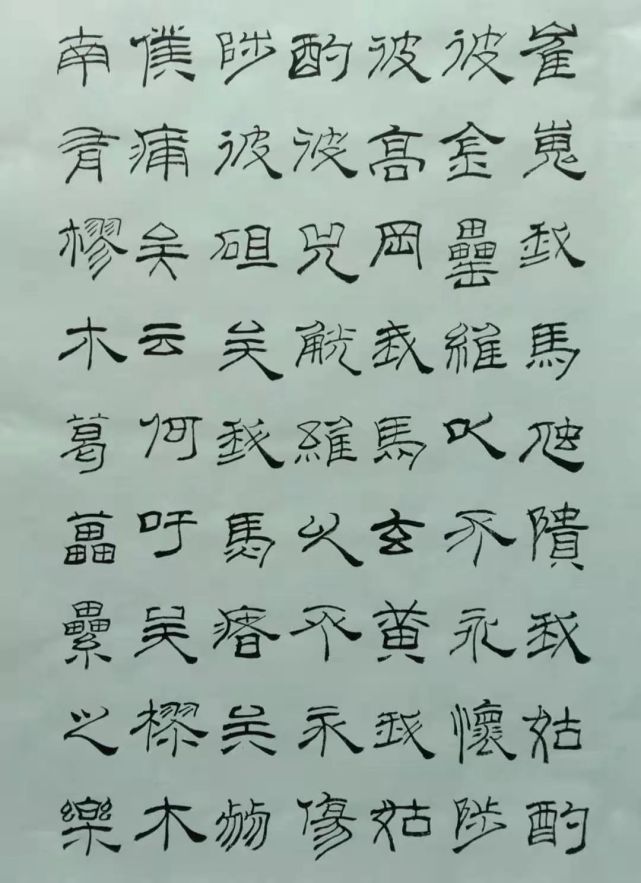 崔嵬我馬虺隤我姑酌
彼金罍維以不永懷陟
彼高岡我馬玄黃我姑
酌彼兕觥維以不永傷
陟彼砠矣我馬瘏矣
僕痡矣云何吁矣樛木
南有樛木葛藟纍之樂